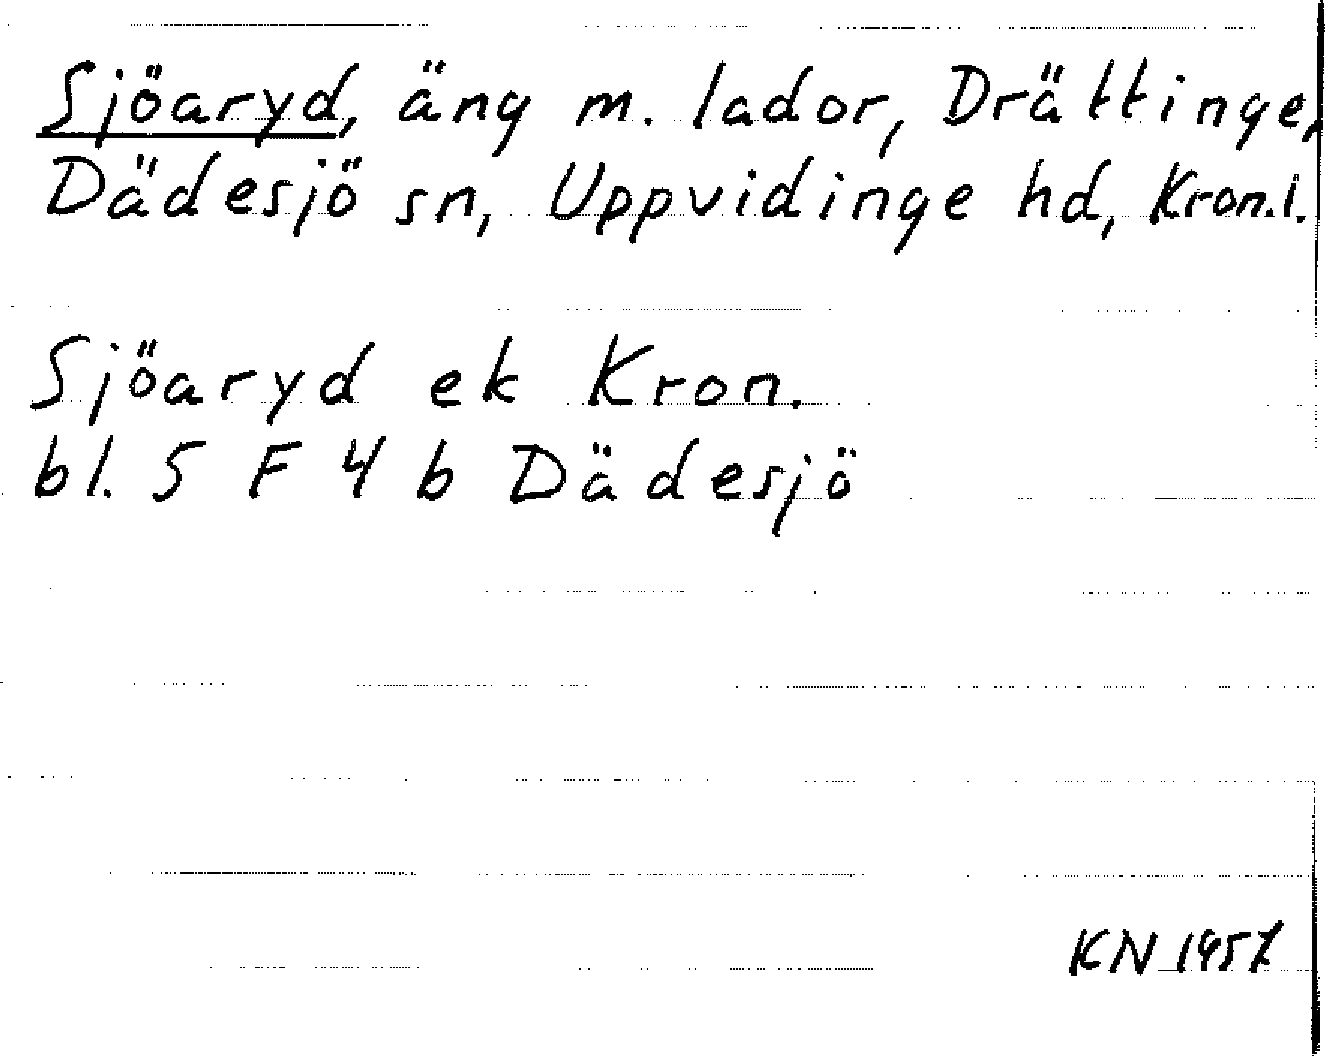 Sjöaryd, äng m. lador, Drättinge,
Dädesjö sn, Uppvidinge hd, Kron.l.
Sjöaryd ek Kron.
bl. 5 F 4 b Dädesjö
KN 1957